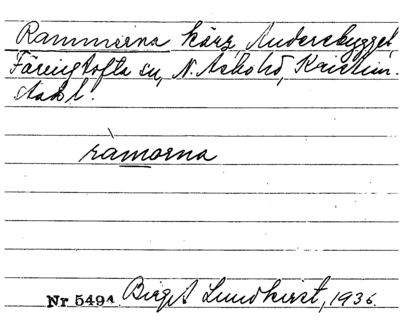 Rammorna kärr, Andersbygget,
Färingtofta sn, N. Åsbohd, Kristian-
stads l.
ràmorna
Nr 5491 Birgit Lundkvist, 1936.